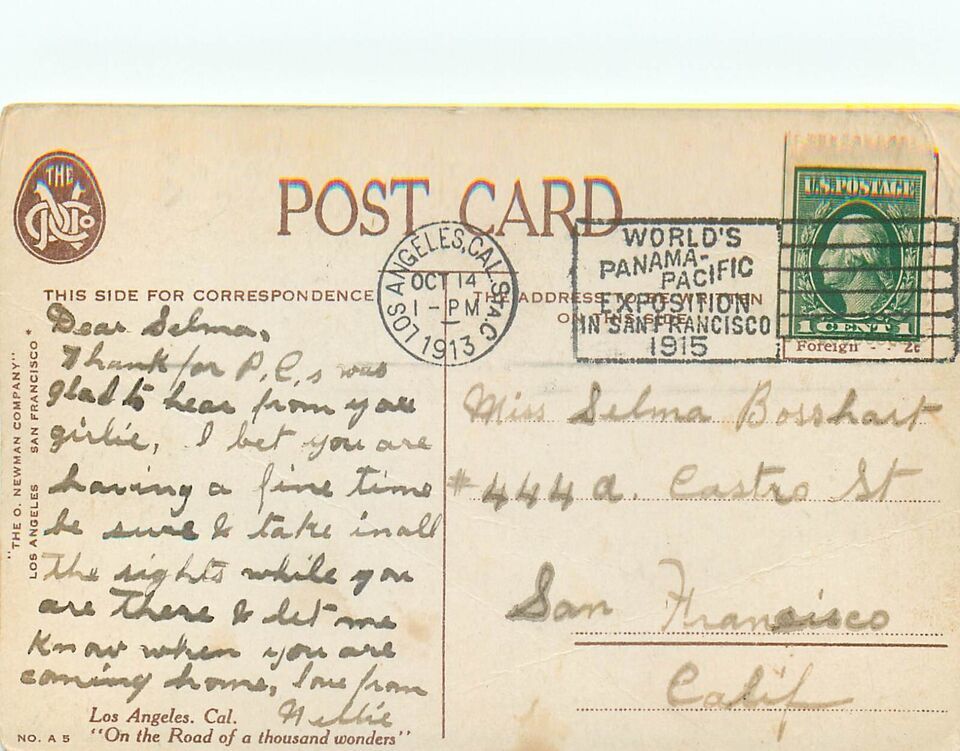 THE
O N Co
POST CARD
LOS ANGELES, CAL. STA. C.
OCT 14
1 - PM
1913
WORLD'S
PANAMA-
PACIFIC
EXPOSITION
IN SAN FRANCISCO
1915
U.S. POSTAGE
1 CENT 1
Foreign 2c
THIS SIDE FOR CORRESPONDENCE
THE ADDRESS TO BE WRITTEN
ON THIS SIDE
Dear Selma,
Thank for P.C,s was
glad to hear from you
girlie, I bet you are
having a fine time
be sure & take in all
the sights while you
are there & let me
know when you are
coming home, love from
Nellie
Miss Selma Bosshart
#444 a. Castro St
San Francisco
Calif
"THE O. NEWMAN COMPANY"
LOS ANGELES SAN FRANCISCO
Los Angeles. Cal.
NO. A 5 "On the Road of a thousand wonders"